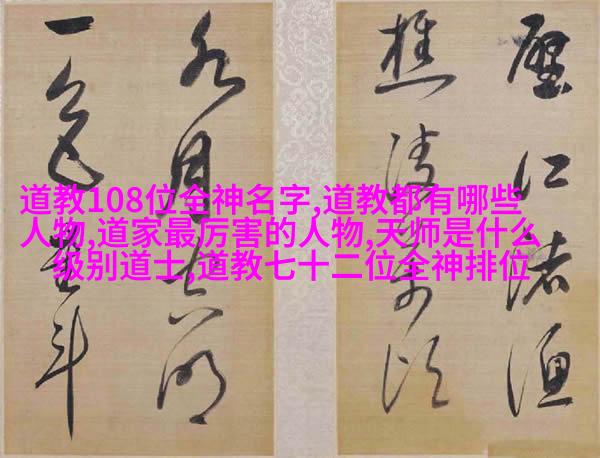 江渚渔
樵
水月明
一色星斗
道教108位全神名字,道教都有哪些
人物,道家最厉害的人物,天师是什么
级别道士,道教七十二位全神排位